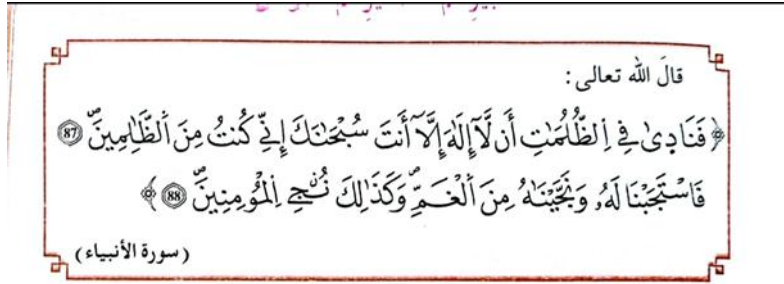 قالَ الله تعالى:
﴿فَنَادِىٰ فِے اِ۬لظُّلُمَٰتِ أَن لَّآ إِلَٰهَ إِلَّآ أَنتَ سُبْحَٰنَكَ إِنِّے كُنتُ مِنَ اَ۬لظَّٰلِمِينَۖ 87
فَاسْتَجَبْنَا لَهُۥ وَنَجَّيْنَٰهُ مِنَ اَ۬لْغَمِّۖ وَكَذَٰلِكَ نُـۨجِے اِ۬لْمُومِنِينَۖ 88﴾
(سورة الأنبياء)